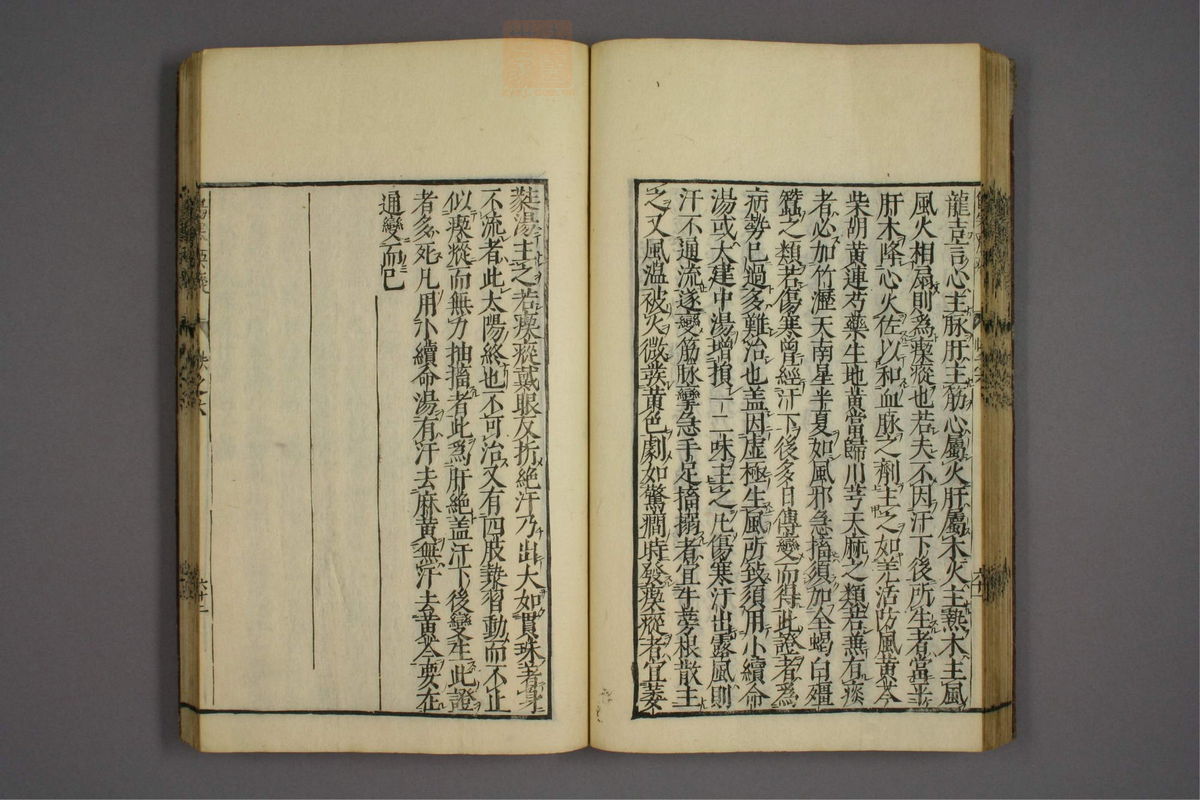 龍言心主脉肝主筋心屬火肝屬木火主熱木主風
風火相扇則為瘈瘲也若夫不因汗下後所生者當平
肝木降心火佐以和血脉之劑主之如羌活防風黄芩
柴胡黄連芍藥生地黄當歸川芎天麻之類若無有痰
者必加竹瀝天南星半夏如風邪急搐須加全蝎白殭
蠶之類若傷寒曾經汗下後多日傳變而得此證者為
病勢已過多難治也盖因虚極生風所致須用小續命
湯或大建中湯增損一二味主之凡傷寒汗出露風則
汗不通流遂變筋脉攣急手足搐搦者宜牛蒡根散主
之又風温被火微發黄色劇如驚癇時發瘈瘲者宜萎
蕤湯主之若瘈瘲戴眼反折絶汗乃出大如貫珠着身
不流者此太陽終也不可治又有四肢漐習動而不止
似瘈瘲而無力抽搐者此為肝絶盖汗下後變生此證
者多死凡用小續命湯有汗去麻黄無汗去黄芩要在
通變而已
六十二